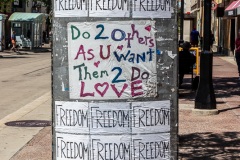 FREEDOM FREEDOM FREEDOM
Do 2 others
As U Want
Them 2 Do
LOVE
FREEDOM FREEDOM FREEDOM
FREEDOM FREEDOM FREEDOM
FREEDOM FREEDOM FREEDOM